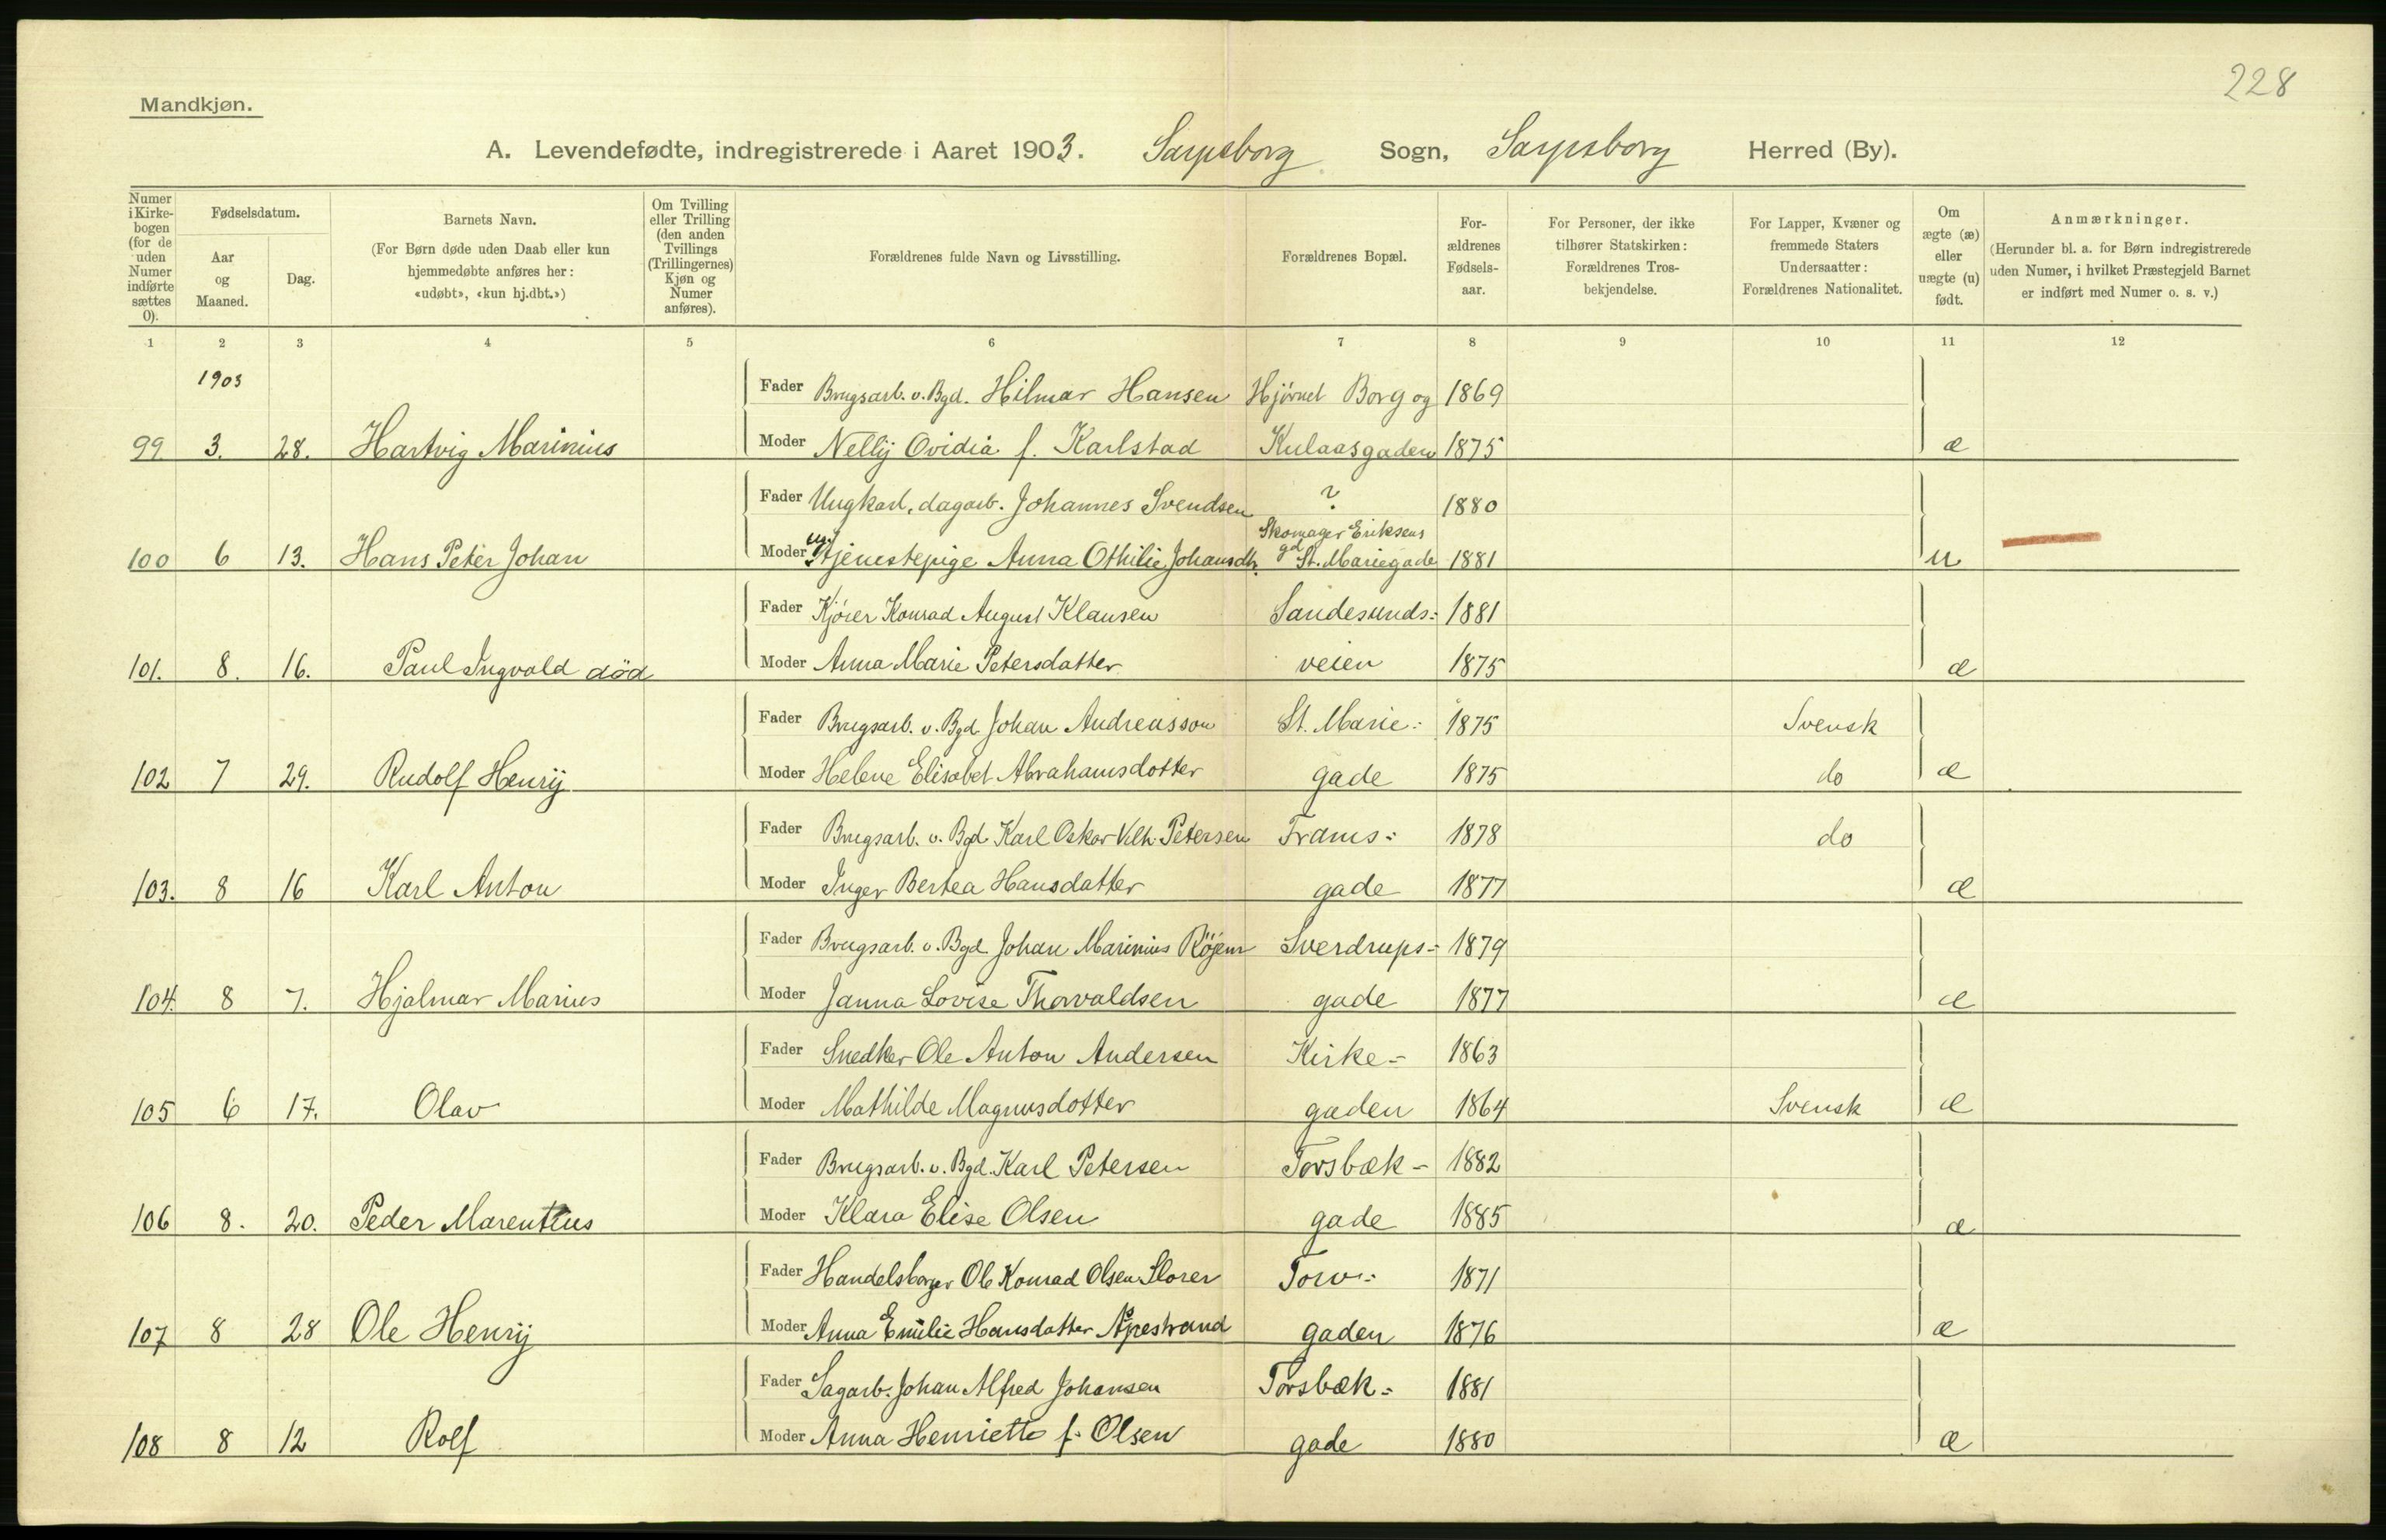 228
Mandkjøn.
A. Levendefødte, indregistrerede i Aaret 1903. Sarpsborg Sogn, Sarpsborg Herred (By).
Numer i Kirkebogen (for de uden Numer indførte sættes 0).
Fødselsdatum.
Aar og Maaned.
Dag.
Barnets Navn.
(For Børn døde uden Daab eller kun hjemmedøbte anføres her: «udøbt», «kun hj.dbt.»)
Om Tvilling eller Trilling (den anden Tvillings (Trillingernes) Kjøn og Numer anføres).
Forældrenes fulde Navn og Livsstilling.
Forældrenes Bopæl.
Forældrenes Fødselsaar.
For Personer, der ikke tilhører Statskirken: Forældrenes Trosbekjendelse.
For Lapper, Kvæner og fremmede Staters Undersaatter: Forældrenes Nationalitet.
Om ægte (æ) eller uægte (u) født.
Anmærkninger.
(Herunder bl. a. for Børn indregistrerede uden Numer, i hvilket Præstegjeld Barnet er indført med Numer o. s. v.)
1 2 3 4 5 6 7 8 9 10 11 12
1903
Fader Brugsarb. v. Bgd. Hilmar Hansen Hjørnet Borg og 1869
99 3. 28. Hartvig Marinius Moder Nelly Ovidia f. Karlstad Kulaasgaden 1875 æ
Fader Ungkarl, dagarb. Johannes Svendsen ? 1880
Skomager Eriksens
100 6 13. Hans Peter Johan Moder Ug. Tjenestepige Anna Othilie Johansdtr. gd St. Mariegade 1881 u
Fader Kjører Konrad August Klausen Sandesunds- 1881
101. 8. 16. Paul Ingvald död Moder Anna Marie Petersdatter veien 1875 æ
Fader Brugsarb. v. Bgd. Johan Andreasson St. Marie- 1875 Svensk
102 7 29. Rudolf Henry Moder Helene Elisabet Abrahamsdotter gade 1875 do æ
Fader Brugsarb. v. Bgd. Karl Oskar Vilh. Petersen Frams- 1878 do
103. 8 16 Karl Anton Moder Inger Bertea Hansdatter gade 1877 æ
Fader Brugsarb. v. Bgd Johan Marinius Röjem Sverdrups- 1879
104. 8 7. Hjalmar Marius Moder Janna Lovise Thorvaldsen gade 1877 æ
Fader Snedker Ole Anton Andersen Kirke- 1863
105 6 17. Olav Moder Mathilde Magnusdotter gaden 1864 Svensk æ
Fader Brugsarb. v. Bgd. Karl Petersen Torsbæk- 1882
106 8. 20. Peder Marentius Moder Klara Elise Olsen gade 1885 æ
Fader Handelsborger Ole Konrad Olsen Storer Torv- 1871
107 8 28 Ole Henry Moder Anna Emilie Hansdatter Apestrand gaden 1876 æ
Fader Sagarb. Johan Alfred Johansen Torsbæk- 1881
108 8 12 Rolf Moder Anna Henriette f. Olsen gade 1880 æ